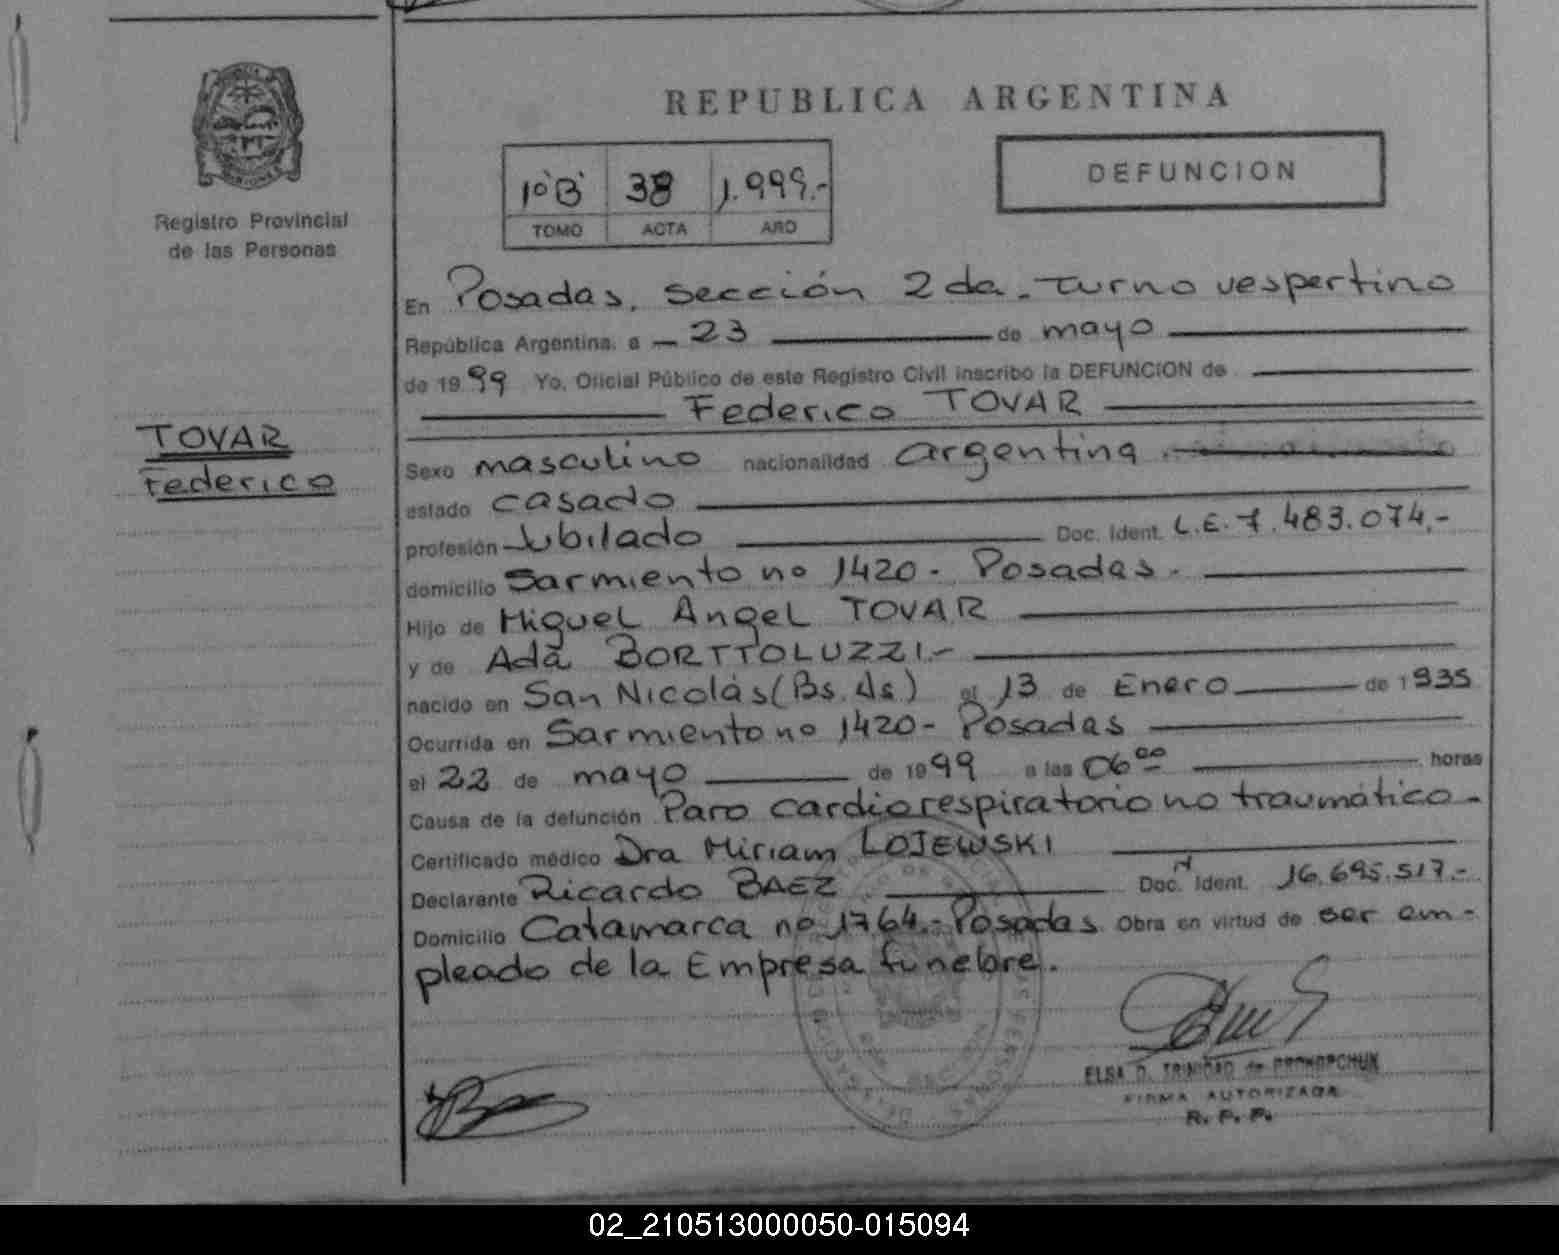 REPUBLICA ARGENTINA
10 "B" 38 1.999.-
TOMO ACTA AÑO
DEFUNCION
Registro Provincial
de las Personas
TOVAR
Federico
En Posadas, sección 2da. turno vespertino
República Argentina, a 23 de mayo
de 1999 Yo, Oficial Público de este Registro Civil inscribo la DEFUNCION de
Federico TOVAR
Sexo masculino nacionalidad argentina
estado casado
profesión Jubilado Doc. Ident. L.E. 7.483.074.-
domicilio Sarmiento nº 1420 - Posadas.
Hijo de Miguel Angel TOVAR
y de Ada BORTTOLUZZI.-
nacido en San Nicolás (Bs. As) el 13 de Enero de 1935
Ocurrida en Sarmiento nº 1420 - Posadas
el 22 de mayo de 1999 a las 06 00 horas
Causa de la defunción Paro cardiorespiratorio no traumático.
Certificado médico Dra Miriam LOJEWSKI
Declarante Ricardo BAEZ Doc. N Ident. 16.695.517.-
Domicilio Catamarca nº 1764.- Posadas Obra en virtud de ser em-
pleado de la Empresa fúnebre.
ELSA D. TRINIDAD de PROKOPCHUK
FIRMA AUTORIZADA
R. P. P.
02_210513000050-015094